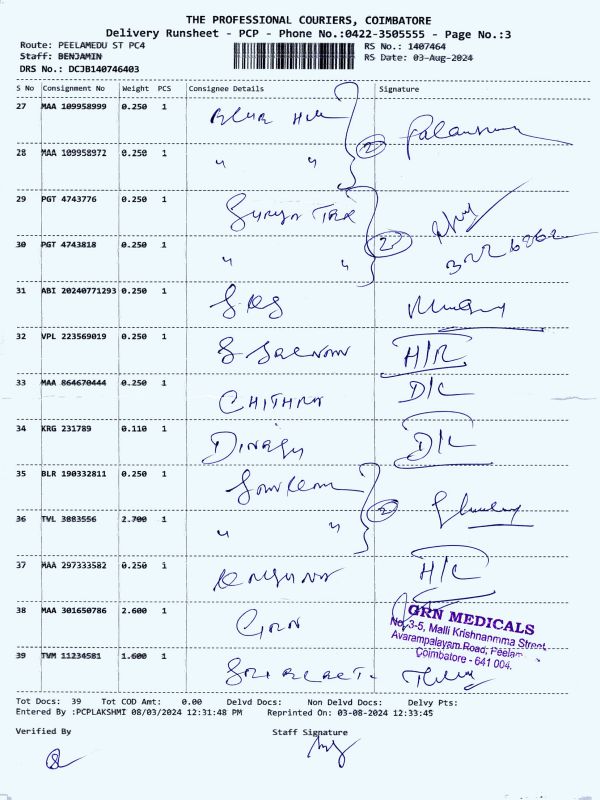 THE PROFESSIONAL COURIERS, COIMBATORE
Delivery Runsheet - PCP - Phone No.:0422-3505555 - Page No.:3
Route: PEELAMEDU ST PC4 RS No.: 1407464
Staff: BENJAMIN RS Date: 03-Aug-2024
DRS No.: DCJB140746403
S No Consignment No Weight PCS Consignee Details Signature
27 MAA 109958999 0.250 1
28 MAA 109958972 0.250 1 " " 2
29 PGT 4743776 0.250 1 Surya Tex
30 PGT 4743818 0.250 1 " " 2
31 ABI 20240771293 0.250 1
32 VPL 223569019 0.250 1 H/R
33 MAA 864670444 0.250 1 CHITHRA D/C
34 KRG 231789 0.110 1 D/C
35 BLR 190332811 0.250 1
36 TVL 3883556 2.700 1 " " 2
37 MAA 297333582 0.250 1 H/C
38 MAA 301650786 2.600 1 GRN
GRN MEDICALS
No. 3-5, Malli Krishnanmma Street,
Avarampalayam Road,
Coimbatore - 641 004.
39 TVM 11234581 1.600 1
Tot Docs: 39 Tot COD Amt: 0.00 Delvd Docs: Non Delvd Docs: Delvy Pts:
Entered By :PCPLAKSHMI 08/03/2024 12:31:48 PM Reprinted On: 03-08-2024 12:33:45
Verified By Staff Signature